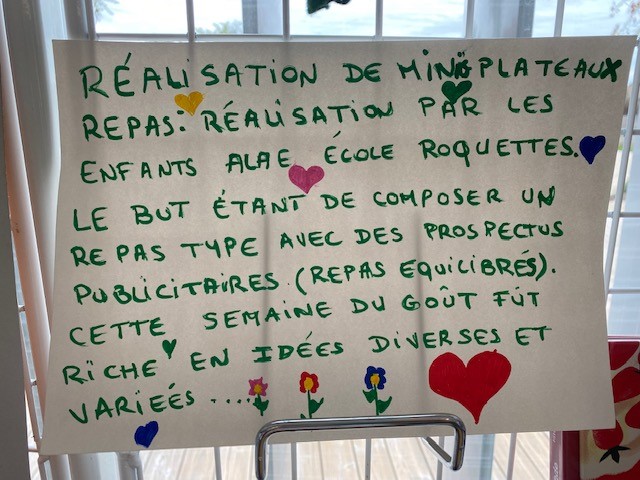 RÉALISATION DE MINÏ PLATEAUX
REPAS: RÉALISATION PAR LES
ENFANTS ALAE ÉCOLE ROQUETTES.
LE BUT ÉTANT DE COMPOSER UN
REPAS TYPE AVEC DES PROSPECTUS
PUBLICITAIRES (REPAS EQUILIBRÉS).
CETTE SEMAINE DU GOÛT FÛT
RICHE EN IDÉES DIVERSES ET
VARIEÉS .....